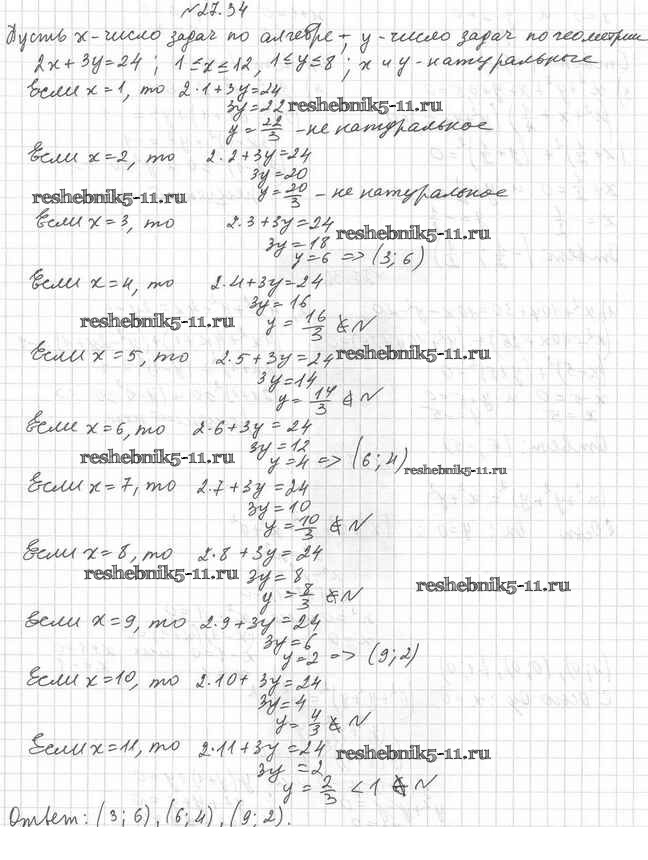 №27.34
Пусть x-число задач по алгебре, y-число задач по геометрии
2x+3y=24; 1≤x≤12, 1≤y≤8; x и y-натуральные
Если x=1, то 2·1+3y=24
3y=22 reshebnik5-11.ru
y=22/3 -не натуральное
Если x=2, то 2·2+3y=24
3y=20
reshebnik5-11.ru y=20/3 -не натуральное
Если x=3, то 2·3+3y=24 reshebnik5-11.ru
3y=18
y=6 => (3;6)
Если x=4, то 2·4+3y=24
3y=16
reshebnik5-11.ru y=16/3 ∉ N
Если x=5, то 2·5+3y=24 reshebnik5-11.ru
3y=14
y=14/3 ∉ N
Если x=6, то 2·6+3y=24
3y=12
reshebnik5-11.ru y=4 => (6;4) reshebnik5-11.ru
Если x=7, то 2·7+3y=24
3y=10
y=10/3 ∉ N
Если x=8, то 2·8+3y=24
reshebnik5-11.ru 3y=8 reshebnik5-11.ru
y=8/3 ∉ N
Если x=9, то 2·9+3y=24
3y=6
y=2 => (9;2)
Если x=10, то 2·10+3y=24
3y=4
y=4/3 ∉ N
Если x=11, то 2·11+3y=24 reshebnik5-11.ru
3y=2
y=2/3 <1 ∉ N
Ответ: (3;6), (6;4), (9;2).